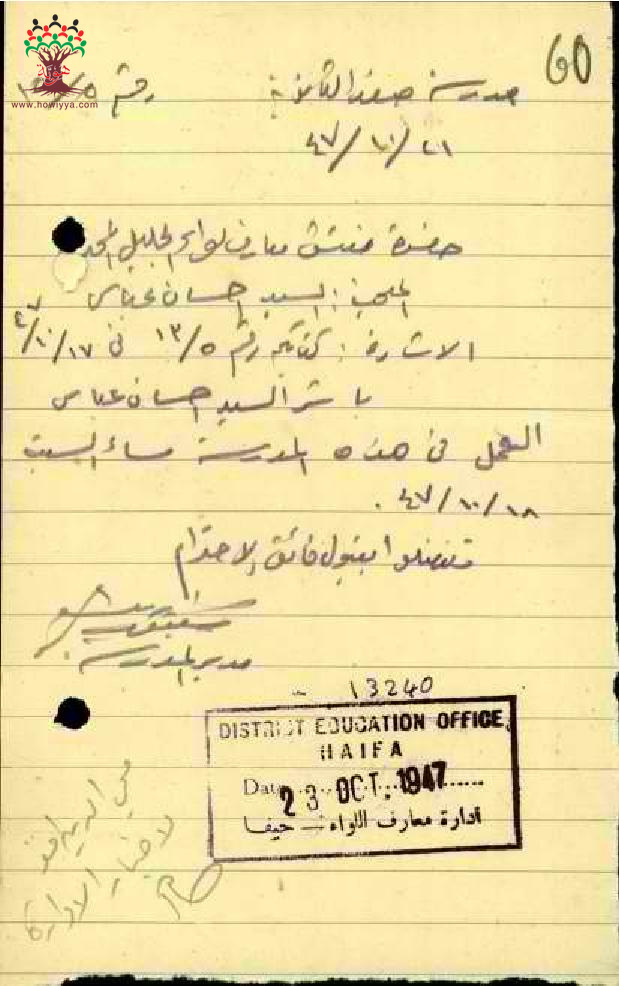 60
www.howiyya.com
مدرسة صفد الثانوية رقم
٤٧/١٠/٢١
حضرة مفتش معارف لواء الجليل المحترم
السيد احسان عباس
الاشارة : كتابكم رقم ١٣/٥ في ٤٧/١٠/١٧
باشر السيد احسان عباس
العمل في هذه المدرسة مساء السبت
٤٧/١٠/١٨ .
تفضلوا بقبول فائق الاحترام
مدير المدرسة
13240
DISTRICT EDUCATION OFFICE,
HAIFA
Date 23 OCT. 1947
ادارة معارف اللواء – حيفا
محي الدين افندي
لاخبار الادارة